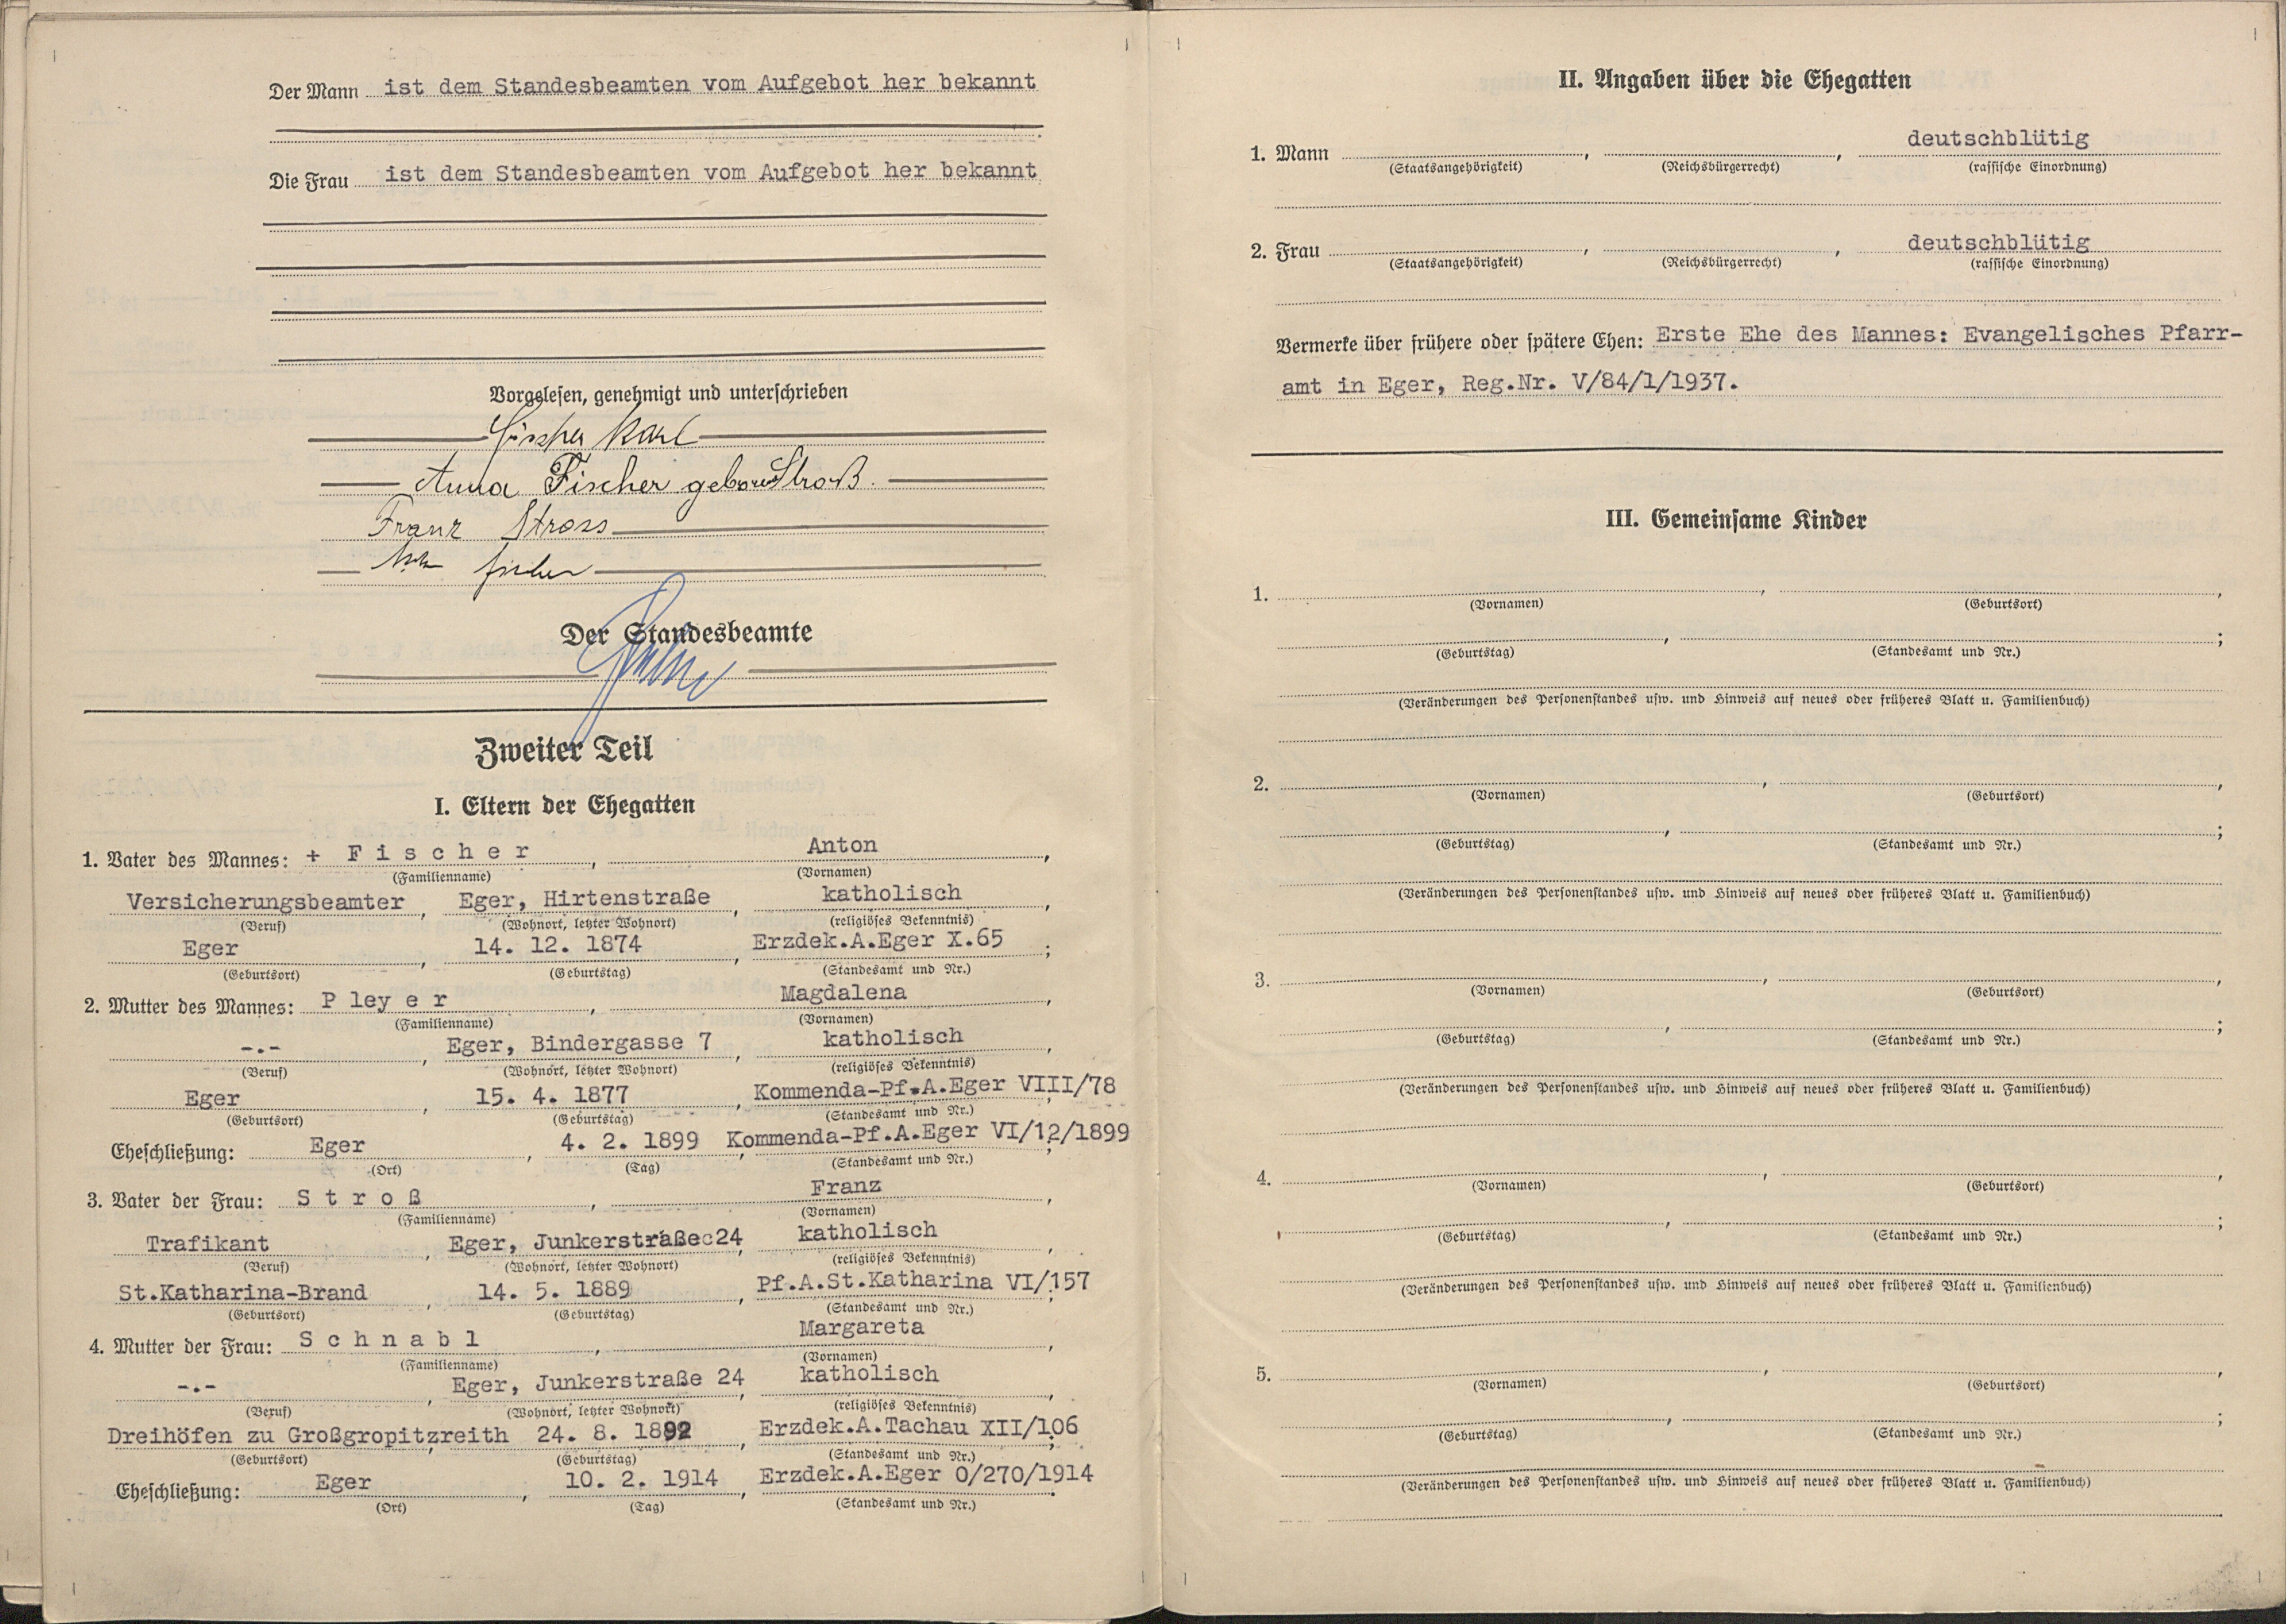 Der Mann ist dem Standesbeamten vom Aufgebot her bekannt
Die Frau ist dem Standesbeamten vom Aufgebot her bekannt
Vorgelesen, genehmigt und unterschrieben
Karl
Anna Fischer geborne Stroß.
Franz Stross
Der Standesbeamte
Zweiter Teil
I. Eltern der Ehegatten
1. Vater des Mannes: + F i s c h e r , Anton ,
(Familienname) (Vornamen)
Versicherungsbeamter , Eger, Hirtenstraße , katholisch ,
(Beruf) (Wohnort, letzter Wohnort) (religiöses Bekenntnis)
Eger , 14. 12. 1874 , Erzdek.A.Eger X.65 ;
(Geburtsort) (Geburtstag) (Standesamt und Nr.)
2. Mutter des Mannes: P ley e r , Magdalena ,
(Familienname) (Vornamen)
-.- , Eger, Bindergasse 7 , katholisch ,
(Beruf) (Wohnort, letzter Wohnort) (religiöses Bekenntnis)
Eger , 15. 4. 1877 , Kommenda-Pf.A.Eger VIII/78 ;
(Geburtsort) (Geburtstag) (Standesamt und Nr.)
Eheschließung: Eger , 4. 2. 1899 , Kommenda-Pf.A.Eger VI/12/1899 ;
(Ort) (Tag) (Standesamt und Nr.)
3. Vater der Frau: S t r o ß , Franz ,
(Familienname) (Vornamen)
Trafikant , Eger, Junkerstraße 24 , katholisch ,
(Beruf) (Wohnort, letzter Wohnort) (religiöses Bekenntnis)
St.Katharina-Brand , 14. 5. 1889 , Pf.A.St.Katharina VI/157 ;
(Geburtsort) (Geburtstag) (Standesamt und Nr.)
4. Mutter der Frau: S c h n a b l , Margareta ,
(Familienname) (Vornamen)
-.- , Eger, Junkerstraße 24 , katholisch ,
(Beruf) (Wohnort, letzter Wohnort) (religiöses Bekenntnis)
Dreihöfen zu Großgropitzreith , 24. 8. 1892 , Erzdek.A.Tachau XII/106 ;
(Geburtsort) (Geburtstag) (Standesamt und Nr.)
Eheschließung: Eger , 10. 2. 1914 , Erzdek.A.Eger O/270/1914 .
(Ort) (Tag) (Standesamt und Nr.)
II. Angaben über die Ehegatten
1. Mann , , deutschblütig
(Staatsangehörigkeit) (Reichsbürgerrecht) (rassische Einordnung)
2. Frau , , deutschblütig
(Staatsangehörigkeit) (Reichsbürgerrecht) (rassische Einordnung)
Vermerke über frühere oder spätere Ehen: Erste Ehe des Mannes: Evangelisches Pfarr-
amt in Eger, Reg.Nr. V/84/1/1937.
III. Gemeinsame Kinder
1. , ,
(Vornamen) (Geburtsort)
, ;
(Geburtstag) (Standesamt und Nr.)
(Veränderungen des Personenstandes usw. und Hinweis auf neues oder früheres Blatt u. Familienbuch)
2. , ,
(Vornamen) (Geburtsort)
, ;
(Geburtstag) (Standesamt und Nr.)
(Veränderungen des Personenstandes usw. und Hinweis auf neues oder früheres Blatt u. Familienbuch)
3. , ,
(Vornamen) (Geburtsort)
, ;
(Geburtstag) (Standesamt und Nr.)
(Veränderungen des Personenstandes usw. und Hinweis auf neues oder früheres Blatt u. Familienbuch)
4. , ,
(Vornamen) (Geburtsort)
, ;
(Geburtstag) (Standesamt und Nr.)
(Veränderungen des Personenstandes usw. und Hinweis auf neues oder früheres Blatt u. Familienbuch)
5. , ,
(Vornamen) (Geburtsort)
, ;
(Geburtstag) (Standesamt und Nr.)
(Veränderungen des Personenstandes usw. und Hinweis auf neues oder früheres Blatt u. Familienbuch)